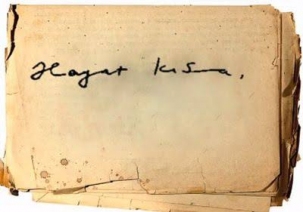 Hayat kısa,